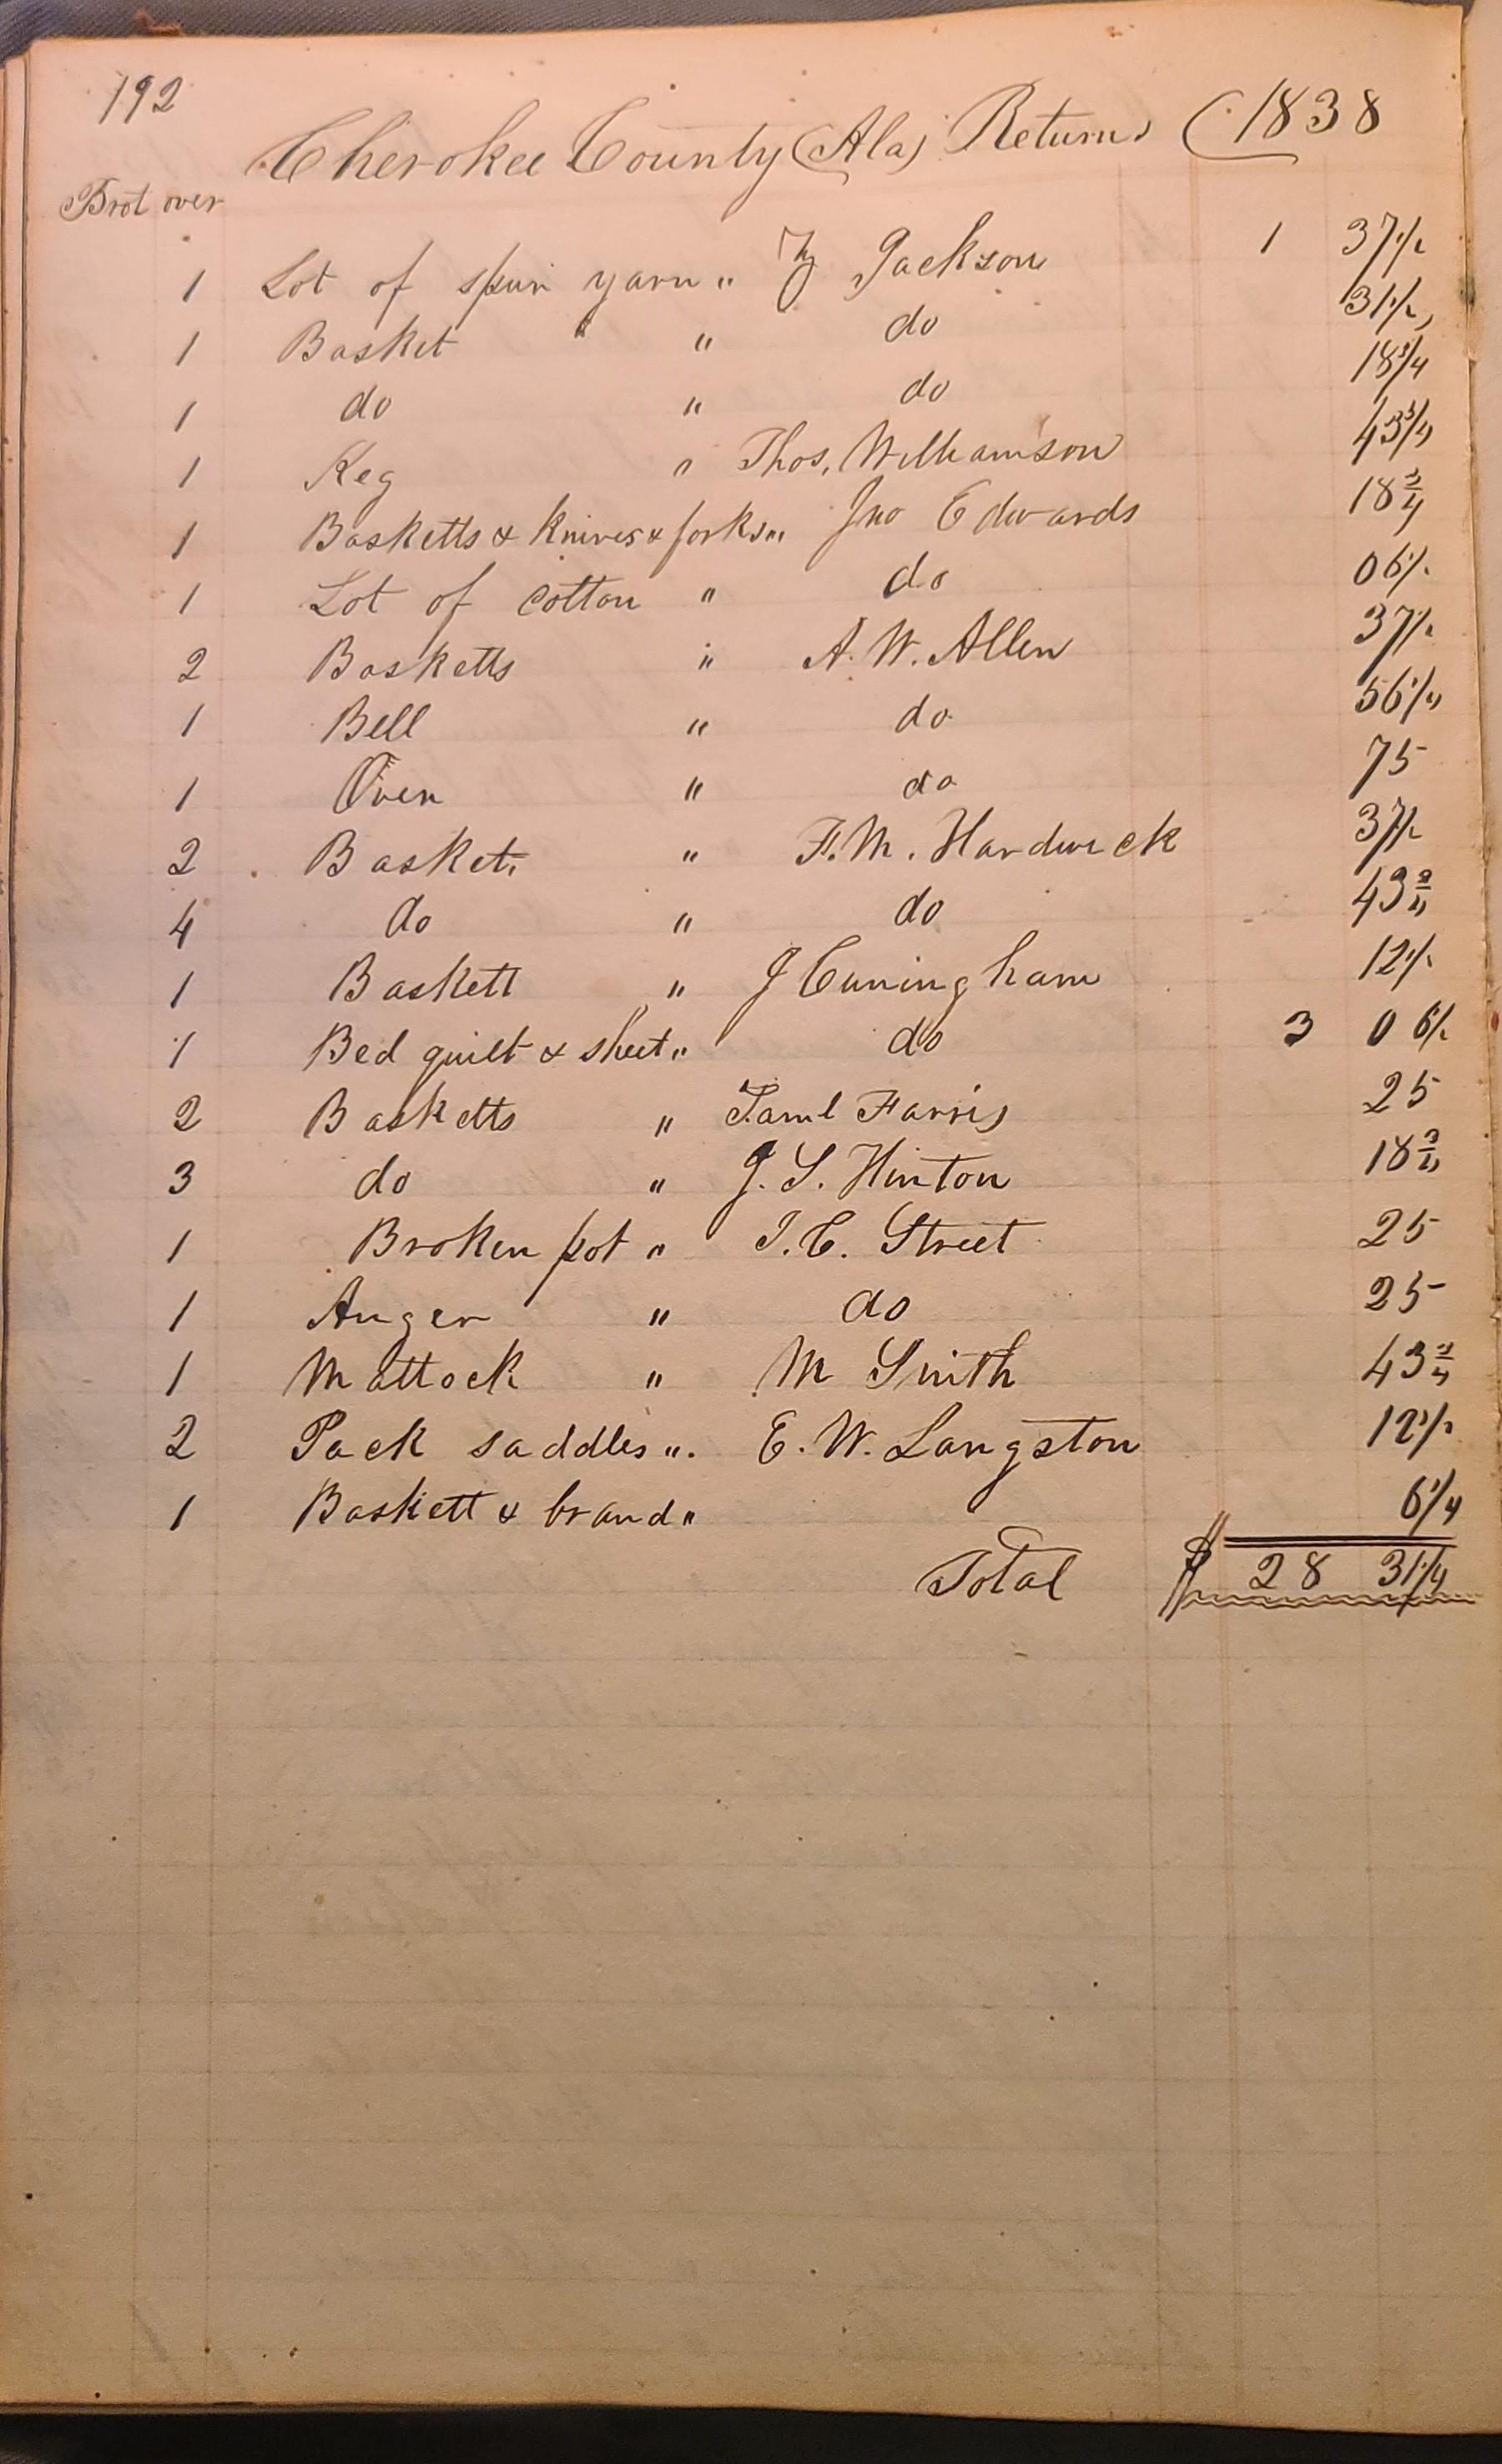 192
Cherokee County (Ala) Returns (1838
Brot over
1 Lot of spun yarn " Jackson 1 37½
1 Basket " do 31½
1 do " do 18¾
1 Keg " Thos. Williamson 43¾
1 Basketts & Knives & forks " Jno Edwards 18¾
1 Lot of cotton " do 06¼
2 Basketts " A. W. Allen 37½
1 Bell " do 56¼
1 Oven " do 75
2 Basket. " F. M. Hardwick 37½
4 do " do 43¾
1 Baskett " J Cuningham 12½
1 Bed quilt & sheet " do 3 06¼
2 Basketts " Saml Farris 25
3 do " J. S. Hinton 18¾
1 Broken pot " J. C. Street 25
1 Auger " do 25
1 Mattock " M Smith 43¾
2 Pack saddles " E. W. Langston 12½
1 Baskett & brand " 6¼
Total $ 28 31¼